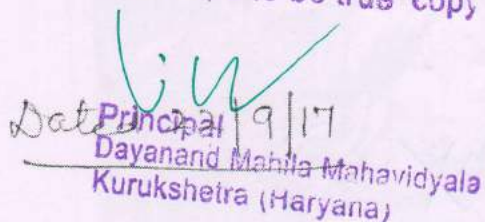 be true copy
Dated 22/9/17
Principal
Dayanand Mahila Mahavidyala
Kurukshetra (Haryana)